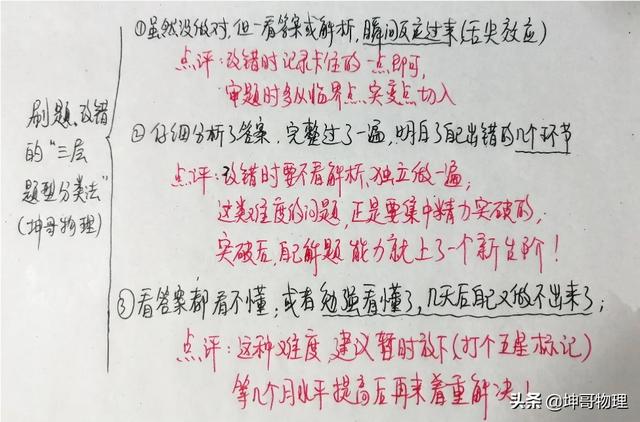 刷题、改错
的“三层
题型分类法”
(坤哥物理)
①虽然没做对,但一看答案或解析,瞬间反应过来(舌尖效应)
点评:改错时记录卡住的一点即可,
审题时多从临界点、突变点切入
②仔细分析了答案,完整过了一遍,明白了自己出错的几个环节
点评:改错时要不看解析、独立做一遍;
这类难度的问题,正是要集中精力突破的,
突破后,自己解题能力就上了一个新台阶!
③看答案都看不懂;或者勉强看懂了,几天后自己又做不出来了;
点评:这种难度,建议暂时放下(打个五星标记)
等几个月水平提高后再来着重解决!
头条@坤哥物理